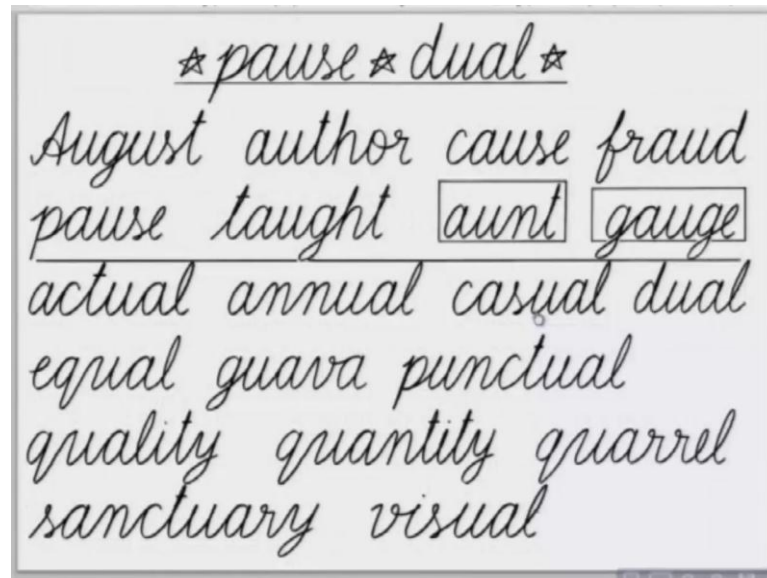 ☆ pause ☆ dual ☆
August author cause fraud
pause taught aunt gauge
actual annual casual dual
equal guava punctual
quality quantity quarrel
sanctuary visual